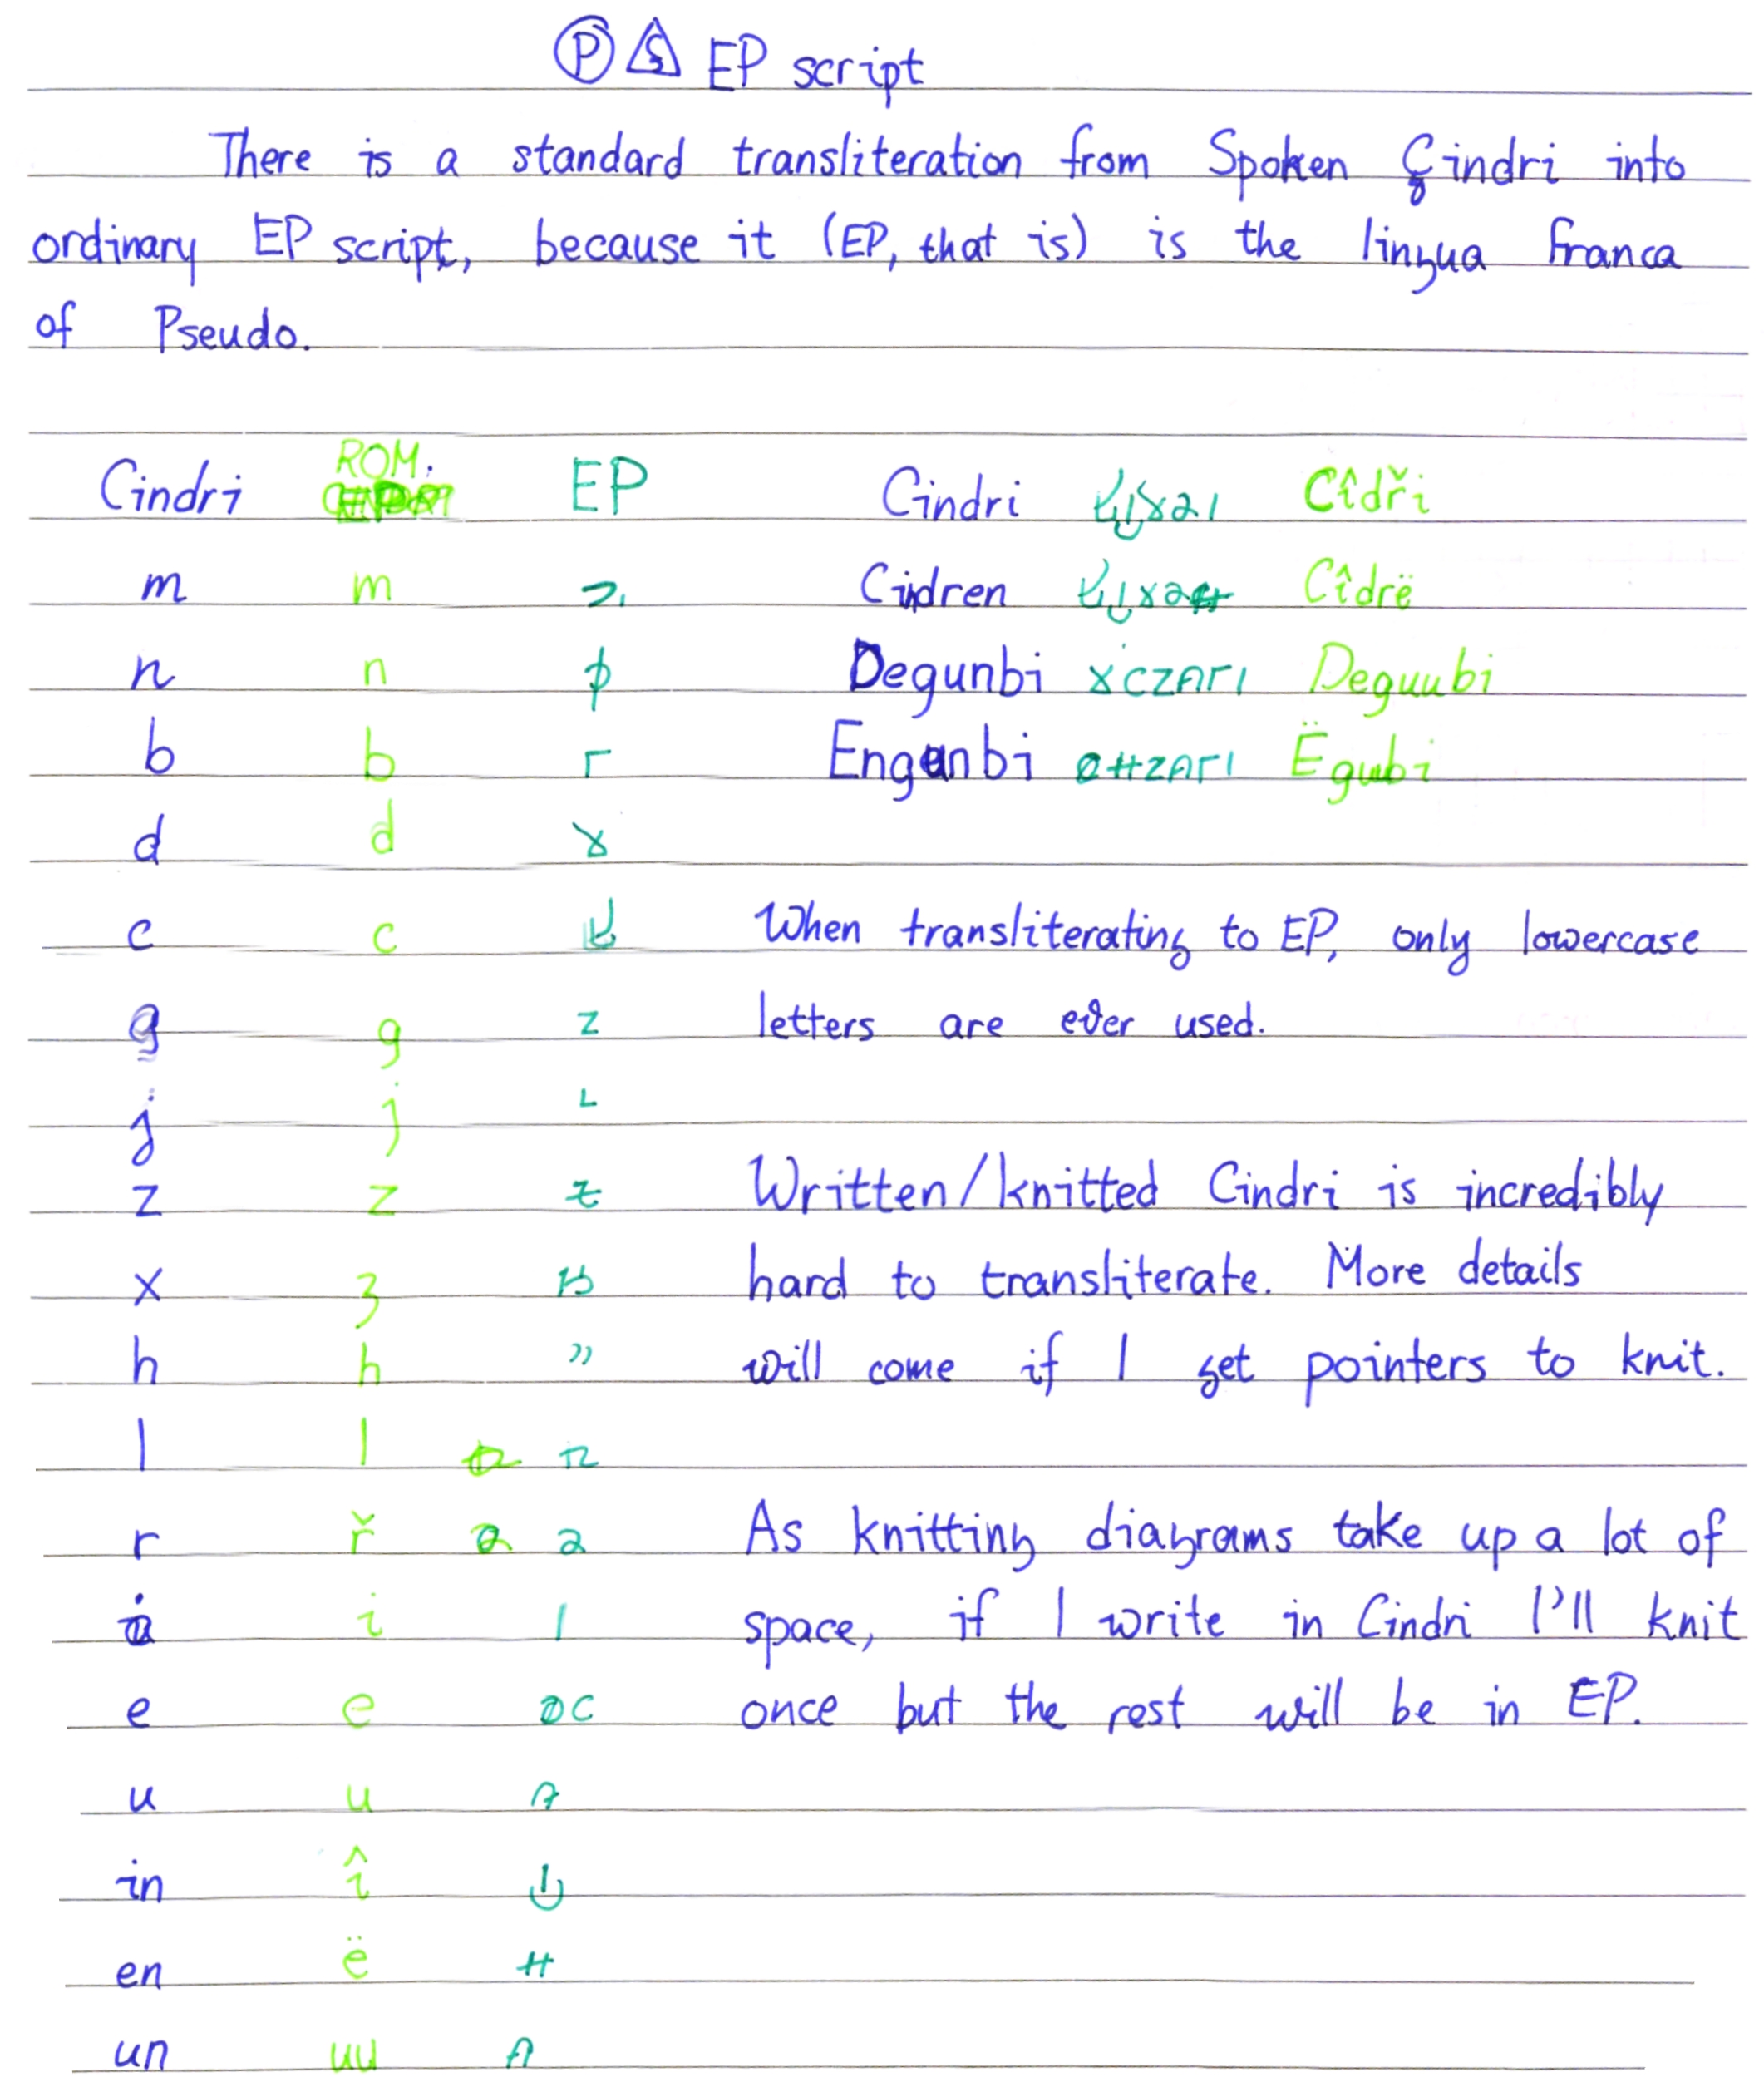 P S EP script
There is a standard transliteration from Spoken Çindri into
ordinary EP script, because it (EP, that is) is the lingua franca
of Pseudo.
Cindri ROM. EP Cindri Cîdři
m m Cindren Cîdrë
n n ϕ Degunbi Deguubi
b b г Engunbi Ëguubi
d d
c c When transliterating to EP, only lowercase
g g z letters are ever used.
j j ʟ
z z Written/knitted Cindri is incredibly
x 3 hard to transliterate. More details
h h " will come if I get pointers to knit.
l l
r ř 2 As knitting diagrams take up a lot of
i i ı space, if I write in Cindri I'll knit
e e c once but the rest will be in EP.
u u
in î
en ë
un uu